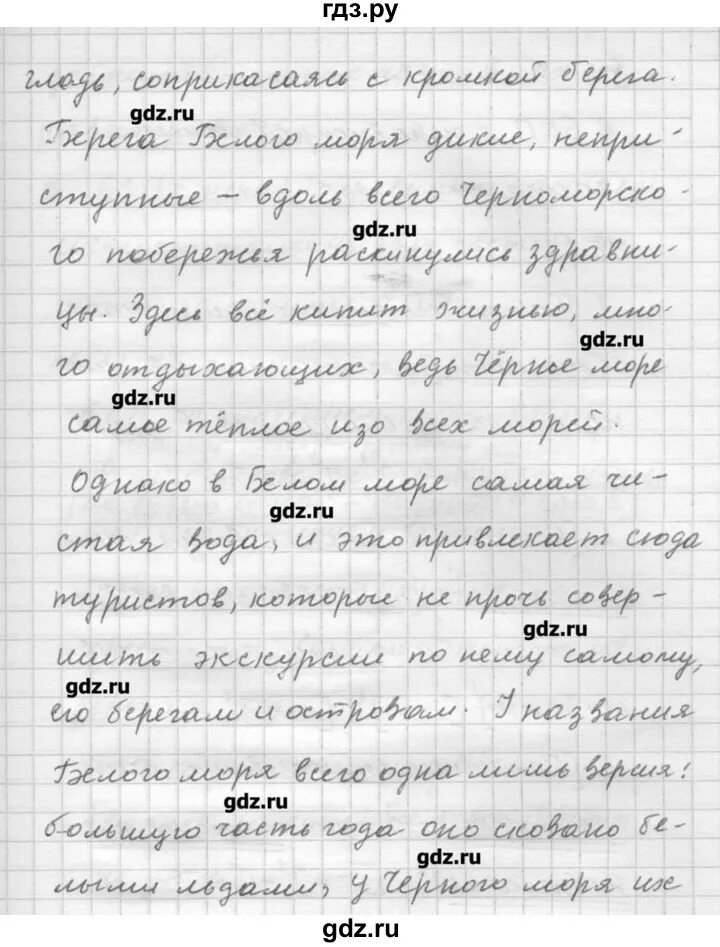 гдз.ру
гладь, соприкасаясь с кромкой берега.
gdz.ru
Берега Белого моря дикие, непри-
ступные – вдоль всего Черноморско-
gdz.ru
го побережья раскинулись здравни-
цы. Здесь всё кипит жизнью, мно-
gdz.ru
го отдыхающих, ведь Чёрное море
gdz.ru
самое тёплое изо всех морей.
Однако в Белом море самая чи-
gdz.ru
стая вода, и это привлекает сюда
туристов, которые не прочь совер-
gdz.ru
шить экскурсии по нему самому,
gdz.ru
его берегам и островам. У названия
Белого моря всего одна лишь версия:
gdz.ru
большую часть года оно сковано бе-
gdz.ru
лыми льдами, у Черного моря их
gdz.ru